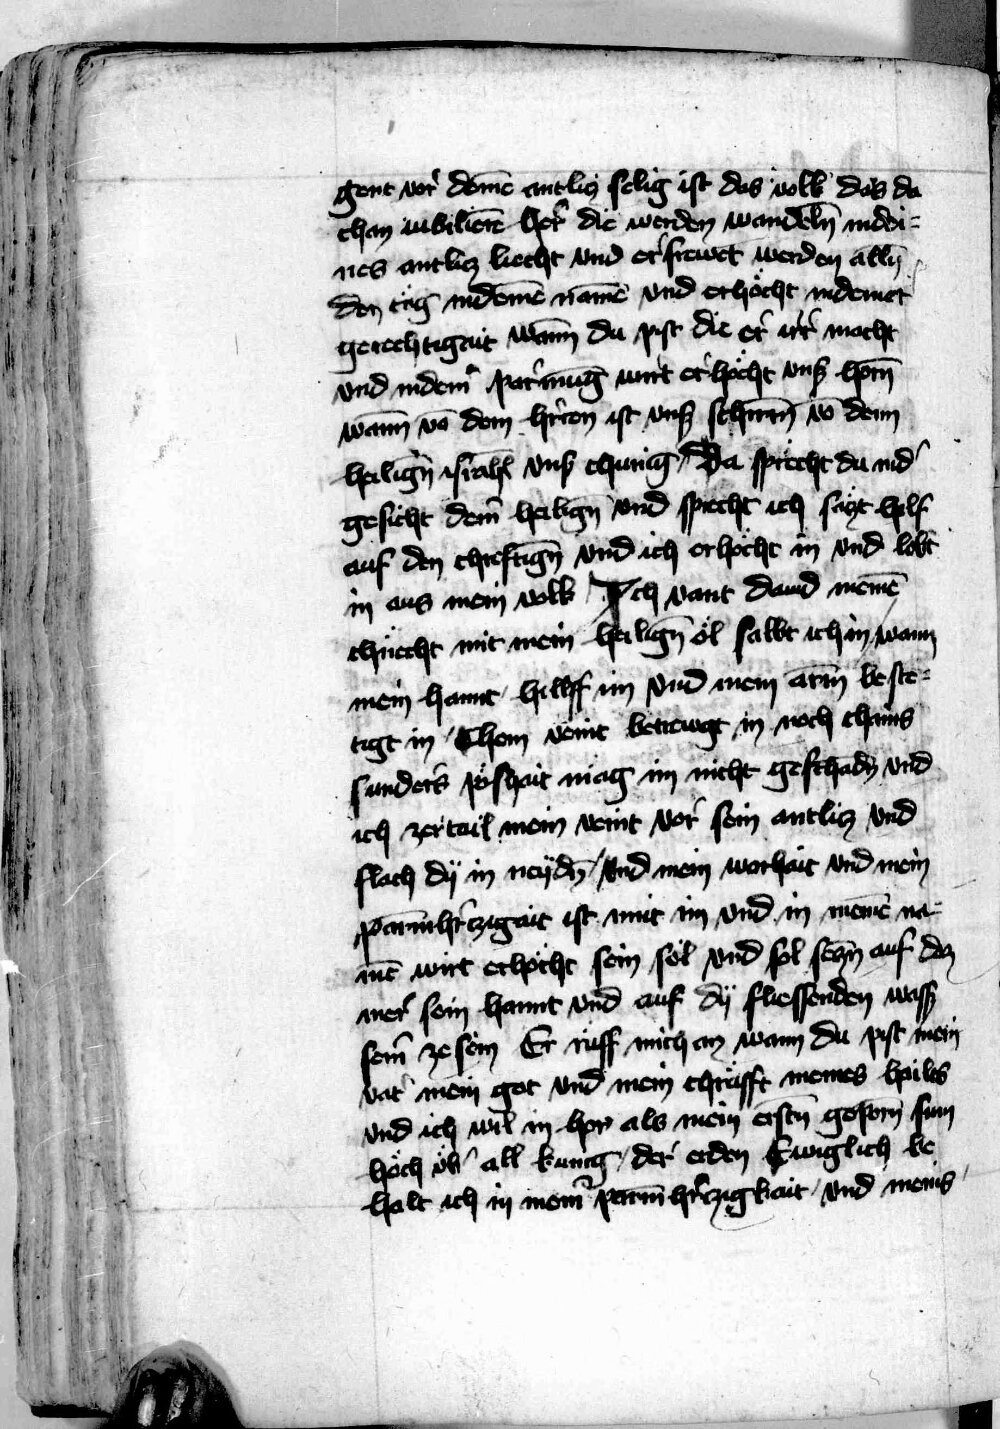 gent vor deinē antlicz selig ist das volk das da
chan iubilierē her die werden wandeln̄ in dei-
nes antlicz liecht vnd erfrewet werden alln̄
den täg in deinē namē vnd erhöcht in deiner
gerechtigait wann̄ du pist die er irr macht
vnd in dein̄ parmūg wirt erhöcht vnß horn̄
wann̄ vō dem hrren ist vnß schirm̄ vō dem
heilign̄ israhel vnß chunig / Da sprecht du in d'
gesicht dein̄ heilign̄ vnd sprecht ich sätzt hilf
auf den chreftign̄ vnd ich erhöcht in vnd lobt
in aus mein volk / Ich vant dauid meinē
chnecht mit mein heilign̄ öl salbt ich in / wann
mein hannt / hillff im vnd mein arm̄ beste-
tigt in / Chain veint betrewgt in noch chains
sunders pöshait mag im nicht geschadn̄ vnd
ich zertail mein veint vor sein antlicz vnd
flach dÿ in neydn̄ / vnd mein warhait vnd mein
parmhrczigait ist mit im vnd in meinē na-
me wirt erhöcht sein söl vnd sol seczn̄ auf daz
mer sein hannt vnd auf dÿ fliessenden wass
sein̄ zesem Er rüff mich an wann du pist mein
vat' mein got vnd mein chräfft meines hailes
vnd ich wil in hör als mein erstn̄ geporn̄ sun
höch üb' all kunig / der erden Ewiglich be
halt ich in mein̄ parmhrczigkait / vnd meins